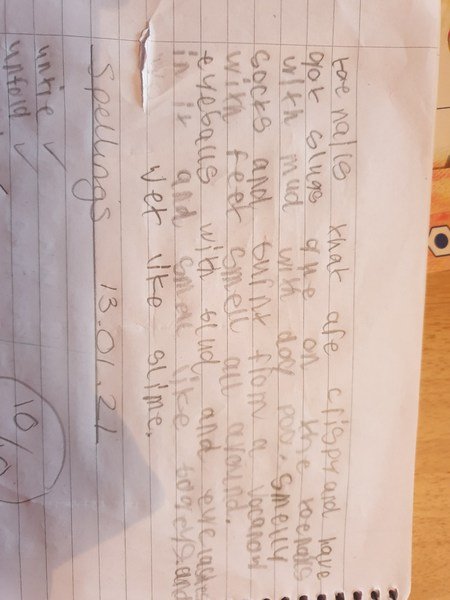 toe nalis that are crispy and have
got slugs gue on the toenails
with mud with dog poo. smelly
socks and burnt from a
with feet smell all around.
eyeballs with blud and
in it and smell like and
wet like slime.
Spellings 13.01.21
untie ✓
unfold ✓
10/10